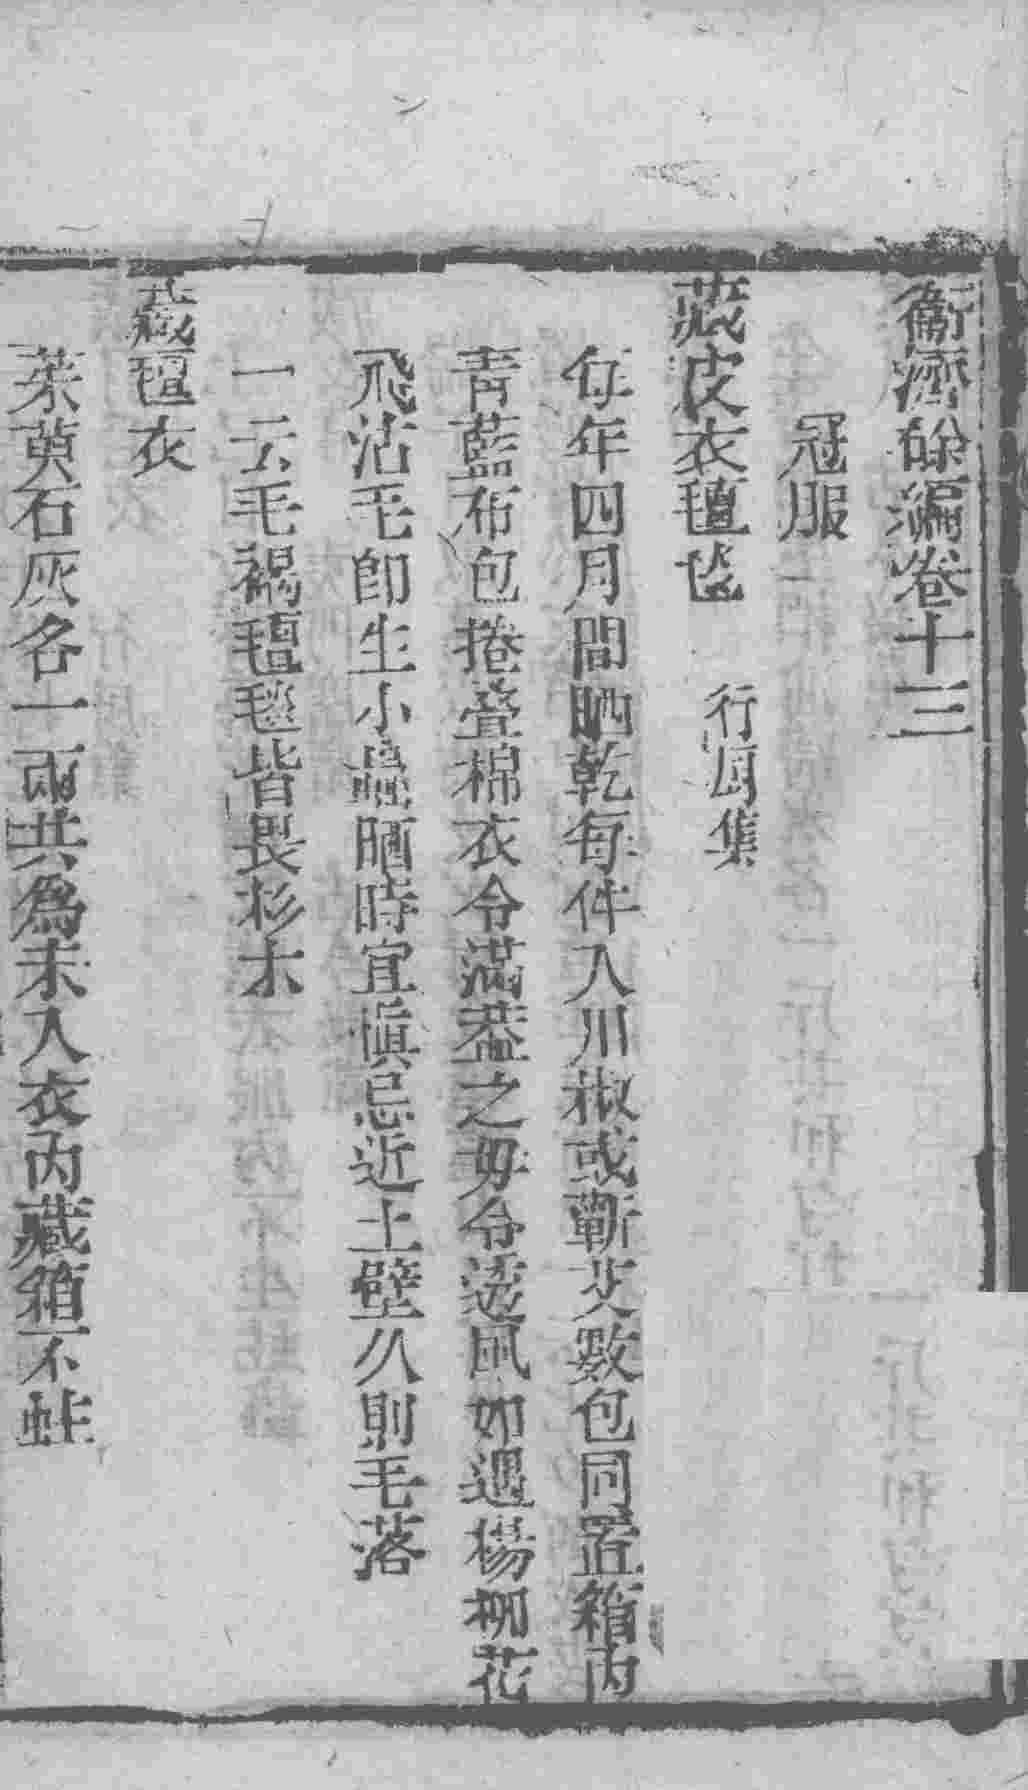 衞濟餘編卷十三
冠服
藏皮衣氊毯 行厨集
每年四月間晒乾每件入川椒或蘄艾數包同置箱内
青藍布包捲疊棉衣令滿葢之毋令透風如遇楊柳花
飛沾毛卽生小蟲晒時宜愼忌近土壁久則毛落
一云毛褐氊毯皆畏杉木
藏氊衣
茱萸石灰各一兩共爲末入衣内藏箱不蛀